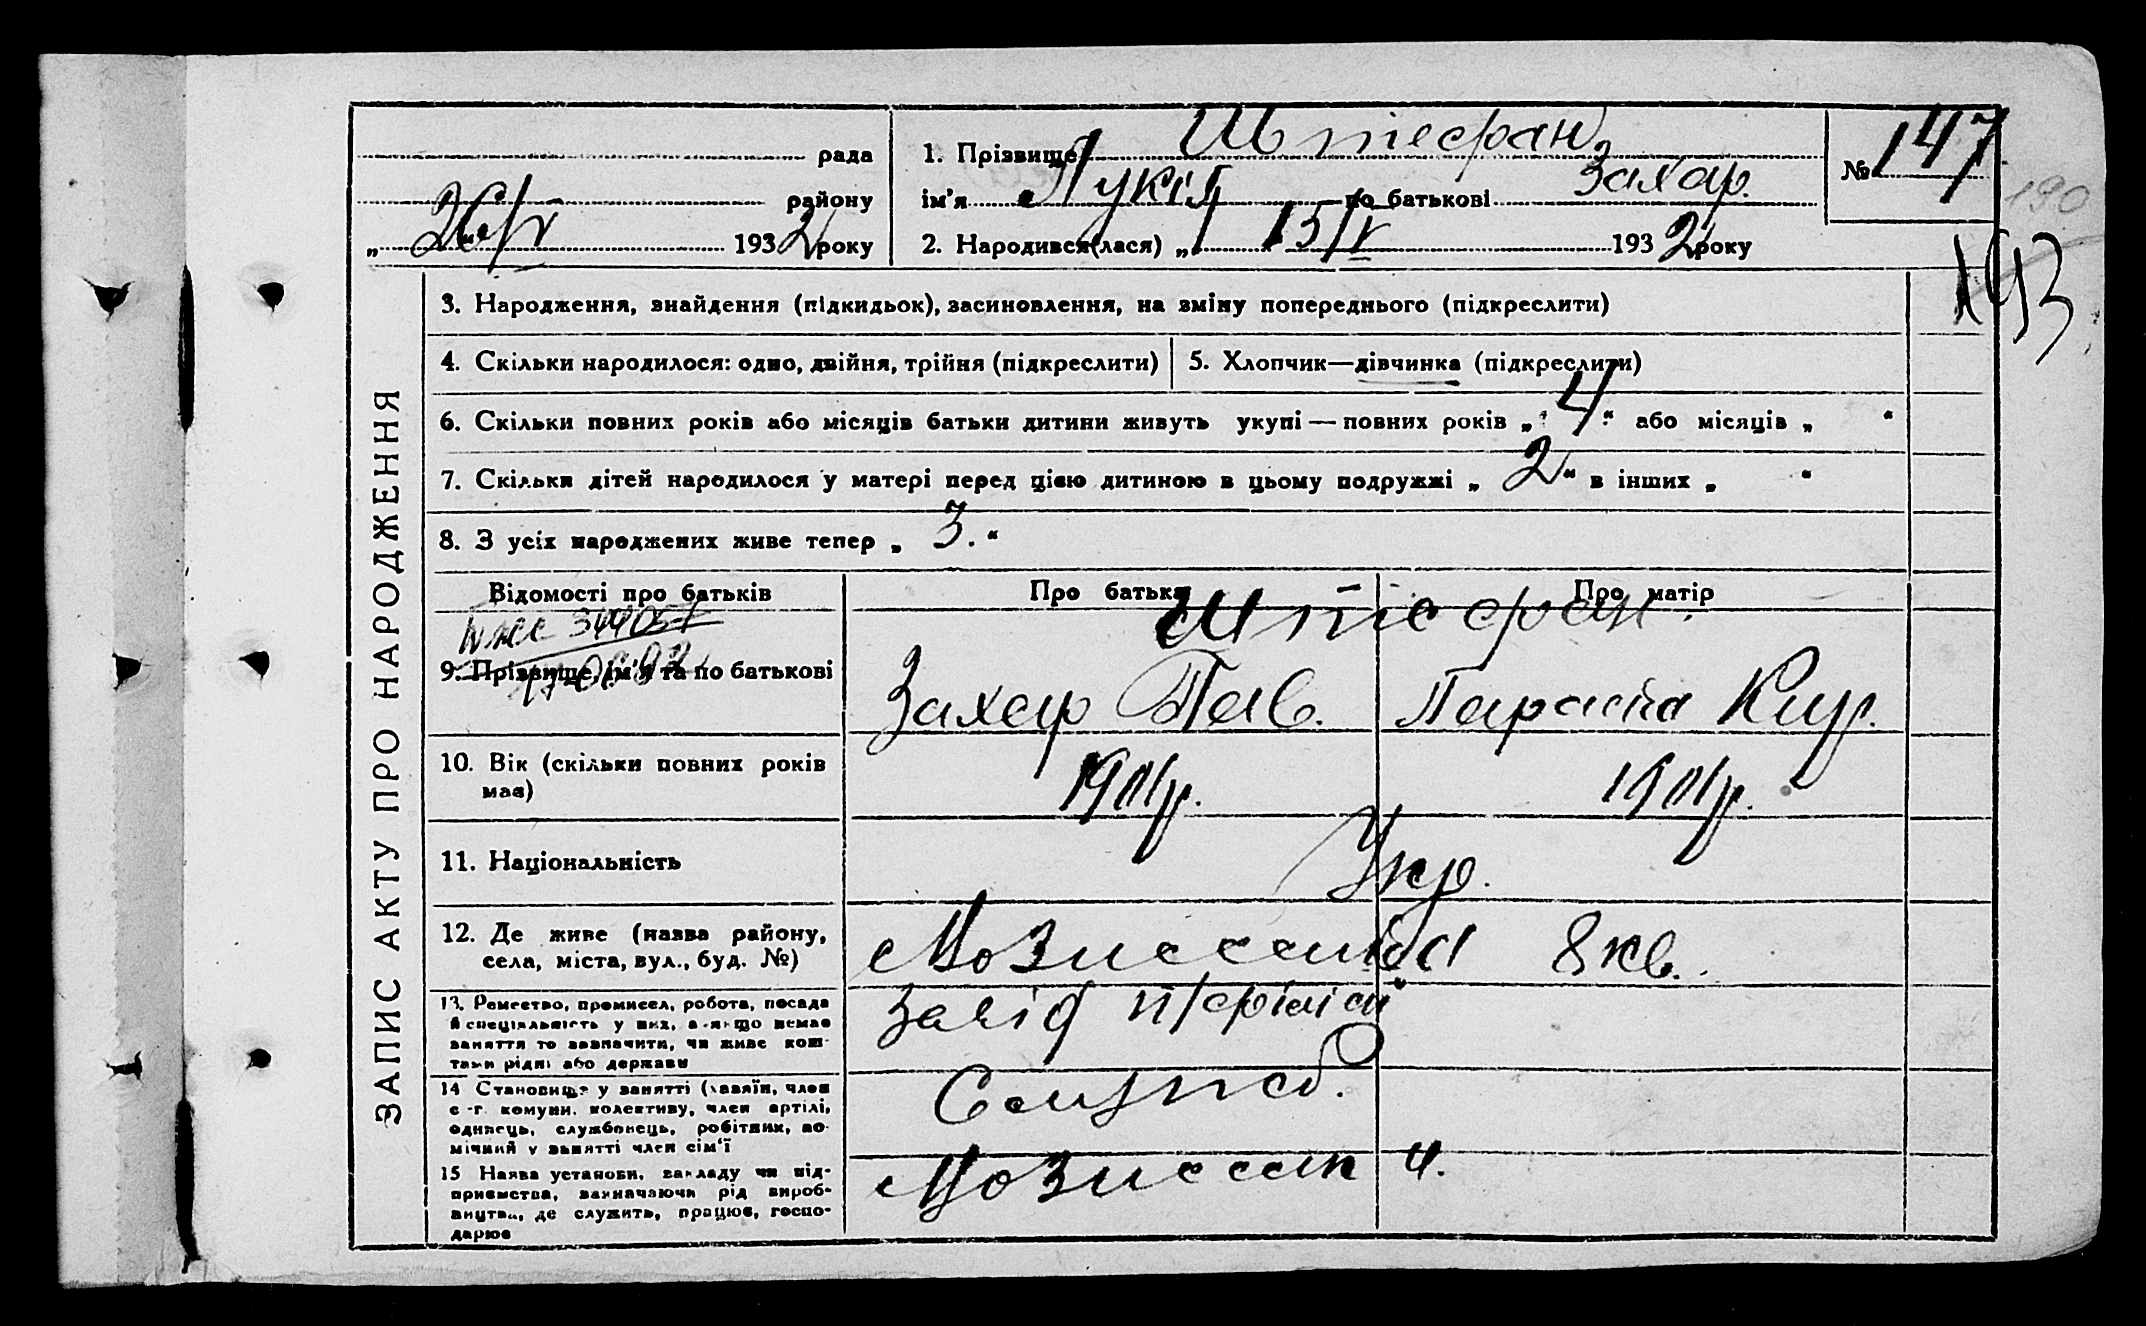 рада
1. Прізвище Штефан
№ 147
району
ім'я Лукія по батькові Захар.
190
„ 26/V 1932 року
2. Народився(лася) „ 15/V 1932 року
193
ЗАПИС АКТУ ПРО НАРОДЖЕННЯ
3. Народження, знайдення (підкидьок), засиновлення, на зміну попереднього (підкреслити)
4. Скільки народилося: одно, двійня, трійня (підкреслити)
5. Хлопчик—дівчинка (підкреслити)
6. Скільки повних років або місяців батьки дитини живуть укупі — повних років „ 4 “ або місяців „ “
7. Скільки дітей народилося у матері перед цією дитиною в цьому подружжі „ 2 “ в інших „ “
8. З усіх народжених живе тепер „ 3. “
Відомості про батьків
Про батька
Про матір
Штефан.
9. Прізвище, ім'я та по батькові
Захар Пав.
Параска Кир.
10. Вік (скільки повних років
має)
1901р.
1901р.
11. Національність
Укр.
12. Де живе (назва району,
села, міста, вул., буд. №)
8 кв.
13. Ремество, промисел, робота, посада
й спеціяльність у них, а якщо немає
заняття то зазначити, чи живе кош-
тами рідні або держави
Завід
14 Становище у занятті (хазяїн, член
с.-г. комуни, колективу, член артілі,
одинець, службовець, робітник, по-
мічний у занятті член сім'ї
15 Назва установи, закладу чи під-
приємства, зазначаючи рід вироб-
ництва, де служить, працює, госпо-
дарює